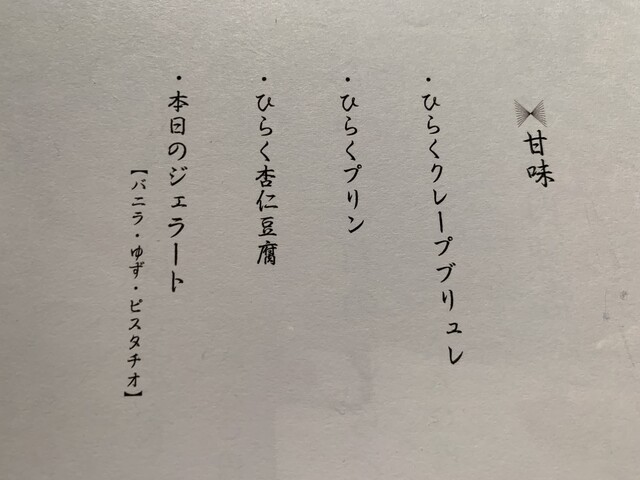 甘味
・ひらくクレープブリュレ
・ひらくプリン
・ひらく杏仁豆腐
・本日のジェラート
【バニラ・ゆず・ピスタチオ】